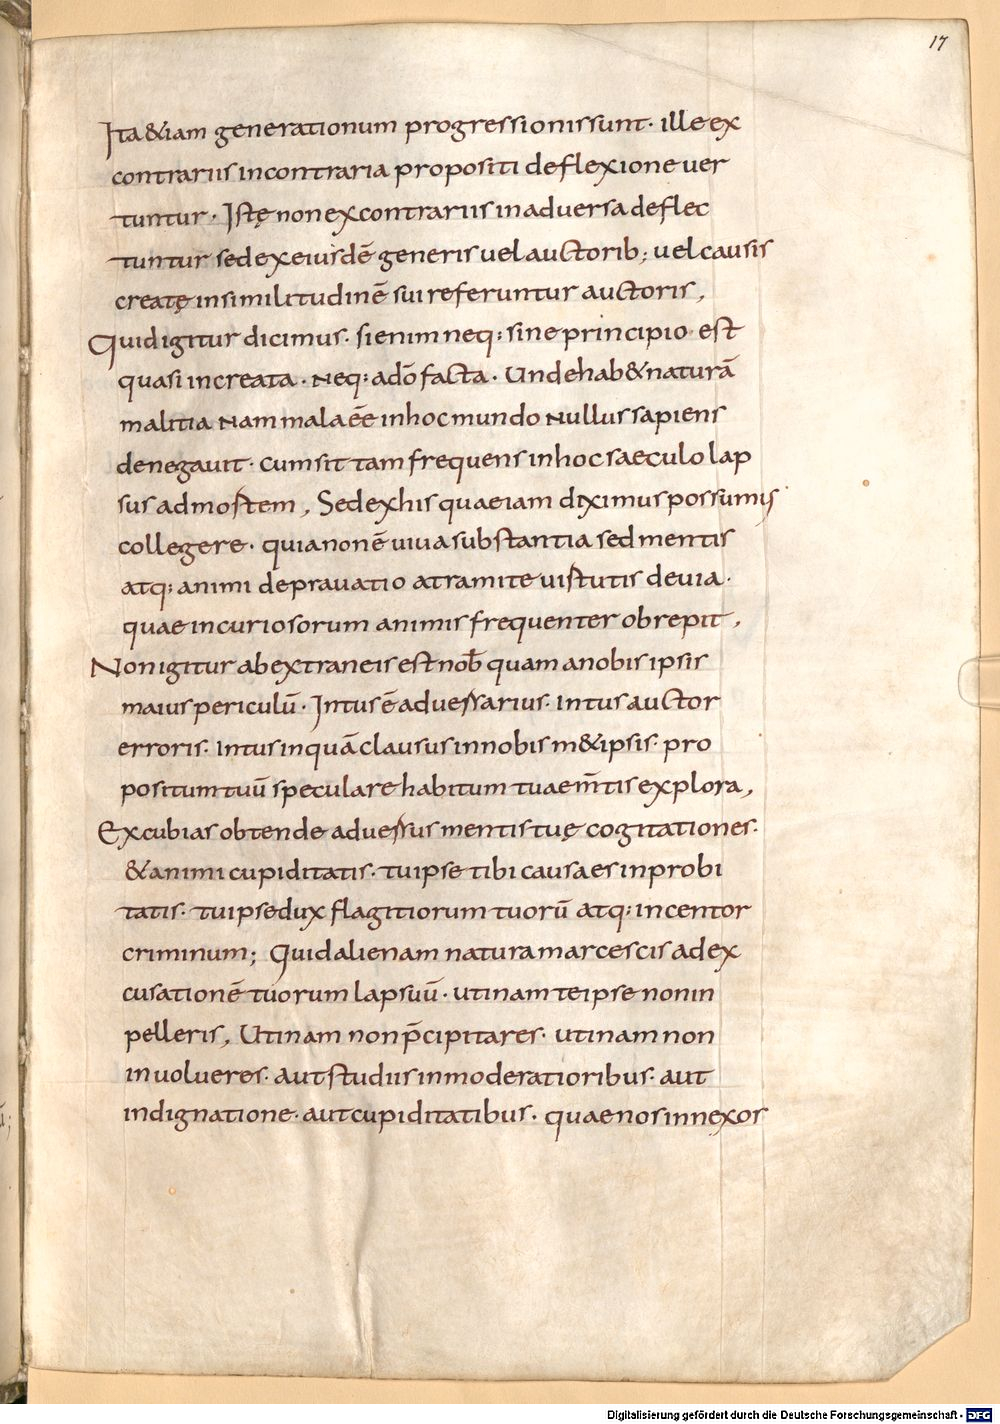 17
Ita &iam generationum progressionis sunt· ille ex
contrariis in contraria propositi deflexione uer
tuntur· Istę non ex contrariis in aduersa deflec
tuntur sed ex eiusdē generis uel auctorib; uel causis
creatę in similitudinē sui referuntur auctoris,
Quid igitur dicimus· si enim neq: sine principio est
quasi increata· Neq: a dō facta· Unde hab& naturā
malitia Nam mala eē in hoc mundo Nullus sapiens
denegauit· cum sit tam frequens in hoc saeculo lap
sus ad mortem, Sed ex his quae iam diximus possumus
collegere· quia non ē uiua substantia sed mentis
atq: animi deprauatio a tramite uirtutis deuia·
quae incuriosorum animis frequenter obrepit,
Non igitur ab extraneis est nob̄ quam a nobis ipsis
maius periculū· Intus ē aduersarius· intus auctor
erroris· intus inquā clausus in nobis m& ipsis· pro
positum tuū speculare habitum tuae m̄tis explora,
Excubias obtende aduersus mentis tuę cogitationes·
& animi cupiditatis· tu ipse tibi causa es inprobi
tatis· tu ipse dux flagitiorum tuorū atq: incentor
criminum; Quid alienam natura marcescis ad ex
cusationē tuorum lapsuū· utinam te ipse non in
pelleris, Utinam non p̄cipitares· utinam non
inuolueres· aut studiis inmoderatioribus· aut
indignatione· aut cupiditatibus· quae nos innexos
Digitalisierung gefördert durch die Deutsche Forschungsgemeinschaft - DFG